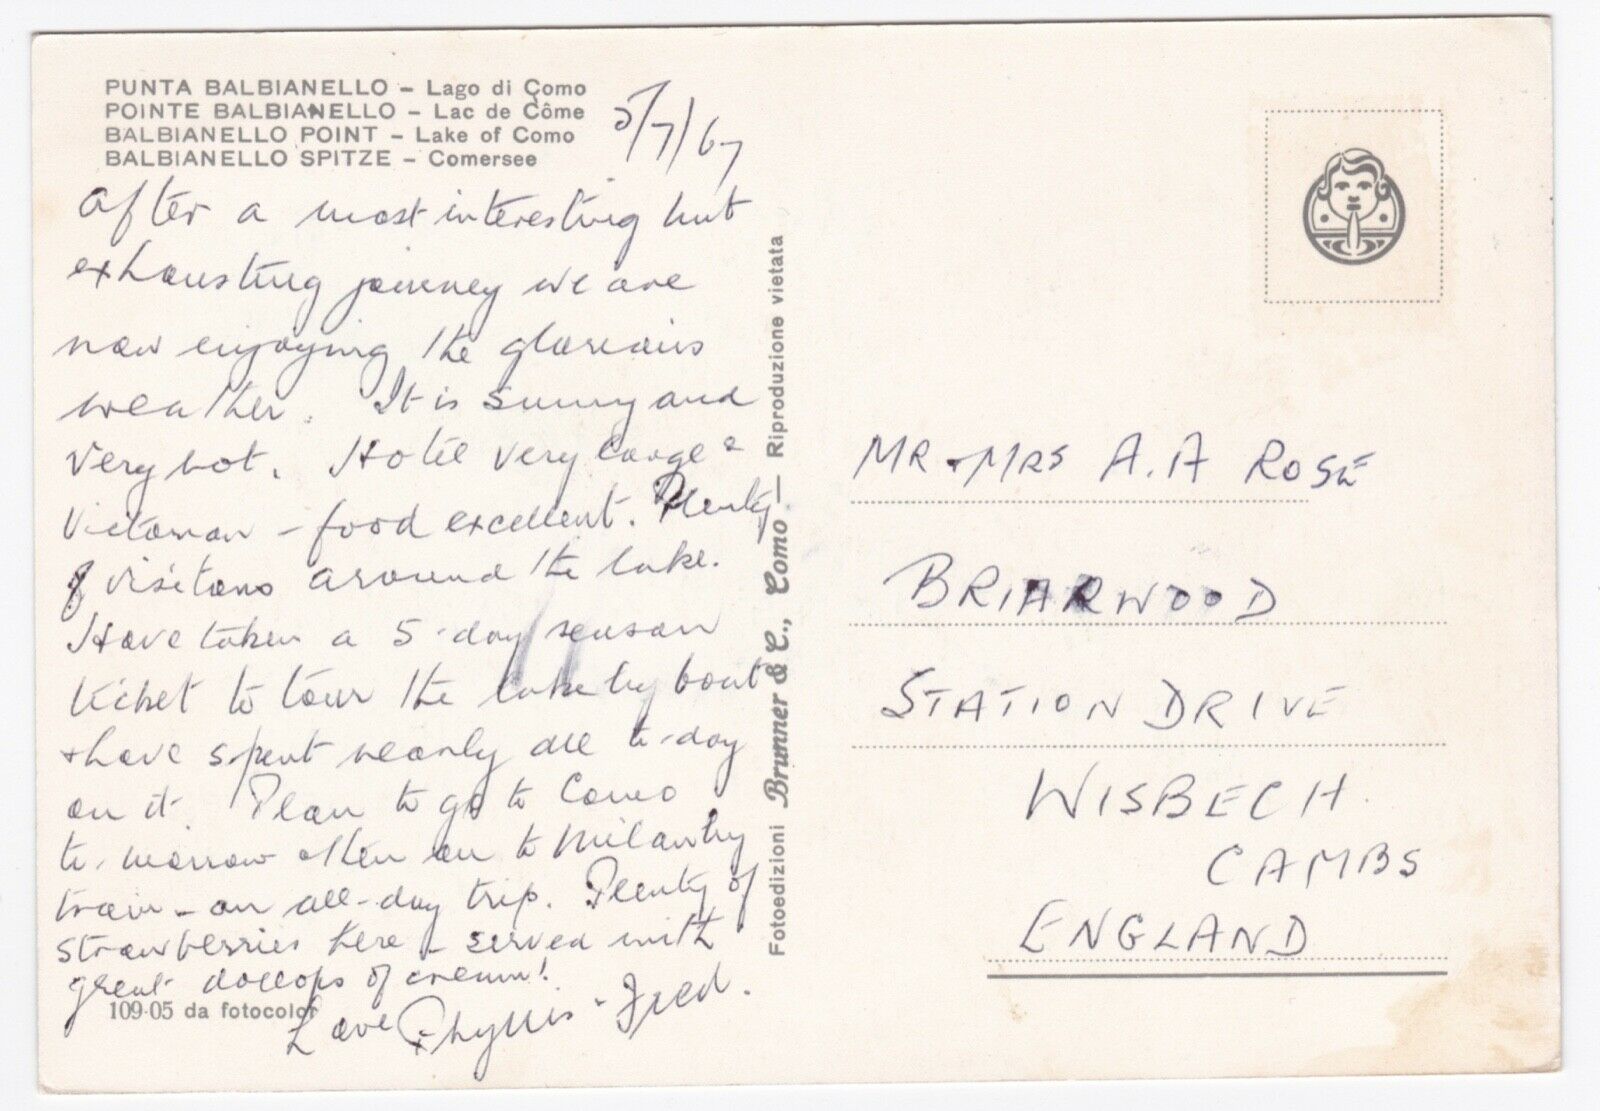 PUNTA BALBIANELLO – Lago di Como
POINTE BALBIANELLO – Lac de Côme
BALBIANELLO POINT – Lake of Como
BALBIANELLO SPITZE – Comersee
5/7/67
After a most interesting but
exhausting journey we are
now enjoying the glorious
weather. It is sunny and
very hot. Hotel very large &
Victorian – food excellent. Plenty
of visitors around the lake.
Have taken a 5-day season
ticket to tour the lake by boat
+ have spent nearly all to-day
on it. Plan to go to Como
to-morrow then on to Milan by
train – an all-day trip. Plenty of
strawberries here – served with
great dollops of cream!
Love Phyllis + Fred.
109-05 da fotocolor
Fotoedizioni Brunner & C., Como – Riproduzione vietata
MR + MRS A. A ROSE
BRIARWOOD
STATION DRIVE
WISBECH
CAMBS
ENGLAND